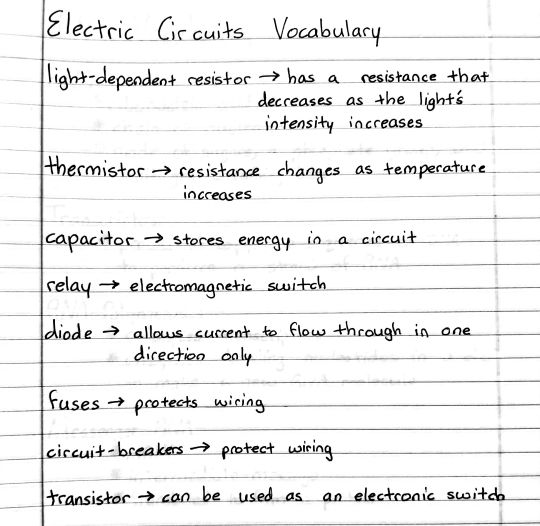 Electric Circuits Vocabulary
light-dependent resistor → has a resistance that
decreases as the light's
intensity increases
thermistor → resistance changes as temperature
increases
capacitor → stores energy in a circuit
relay → electromagnetic switch
diode → allows current to flow through in one
direction only
fuses → protects wiring
circuit-breakers → protect wiring
transistor → can be used as an electronic switch